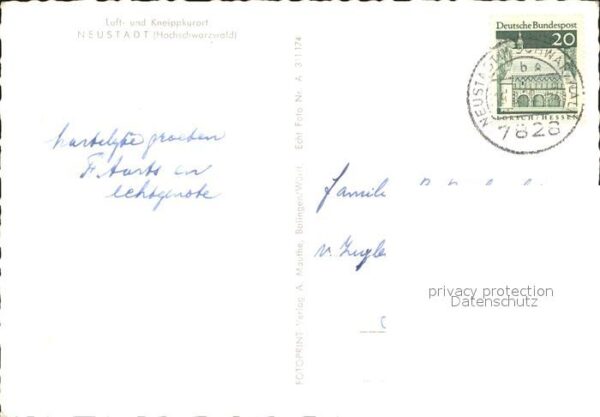 Luft- und Kneippkurort
NEUSTADT (Hochschwarzwald)
hartelijke groeten
F. Aarts en
echtgenote
FOTOPRINT Verlag A. Mauthe, Balingen/Württ. Echt Foto Nr. A 311174
Deutsche Bundespost
20
LORSCH/HESSEN
NEUSTADT IM SCHWARZWALD
7828
Familie
v.
privacy protection
Datenschutz